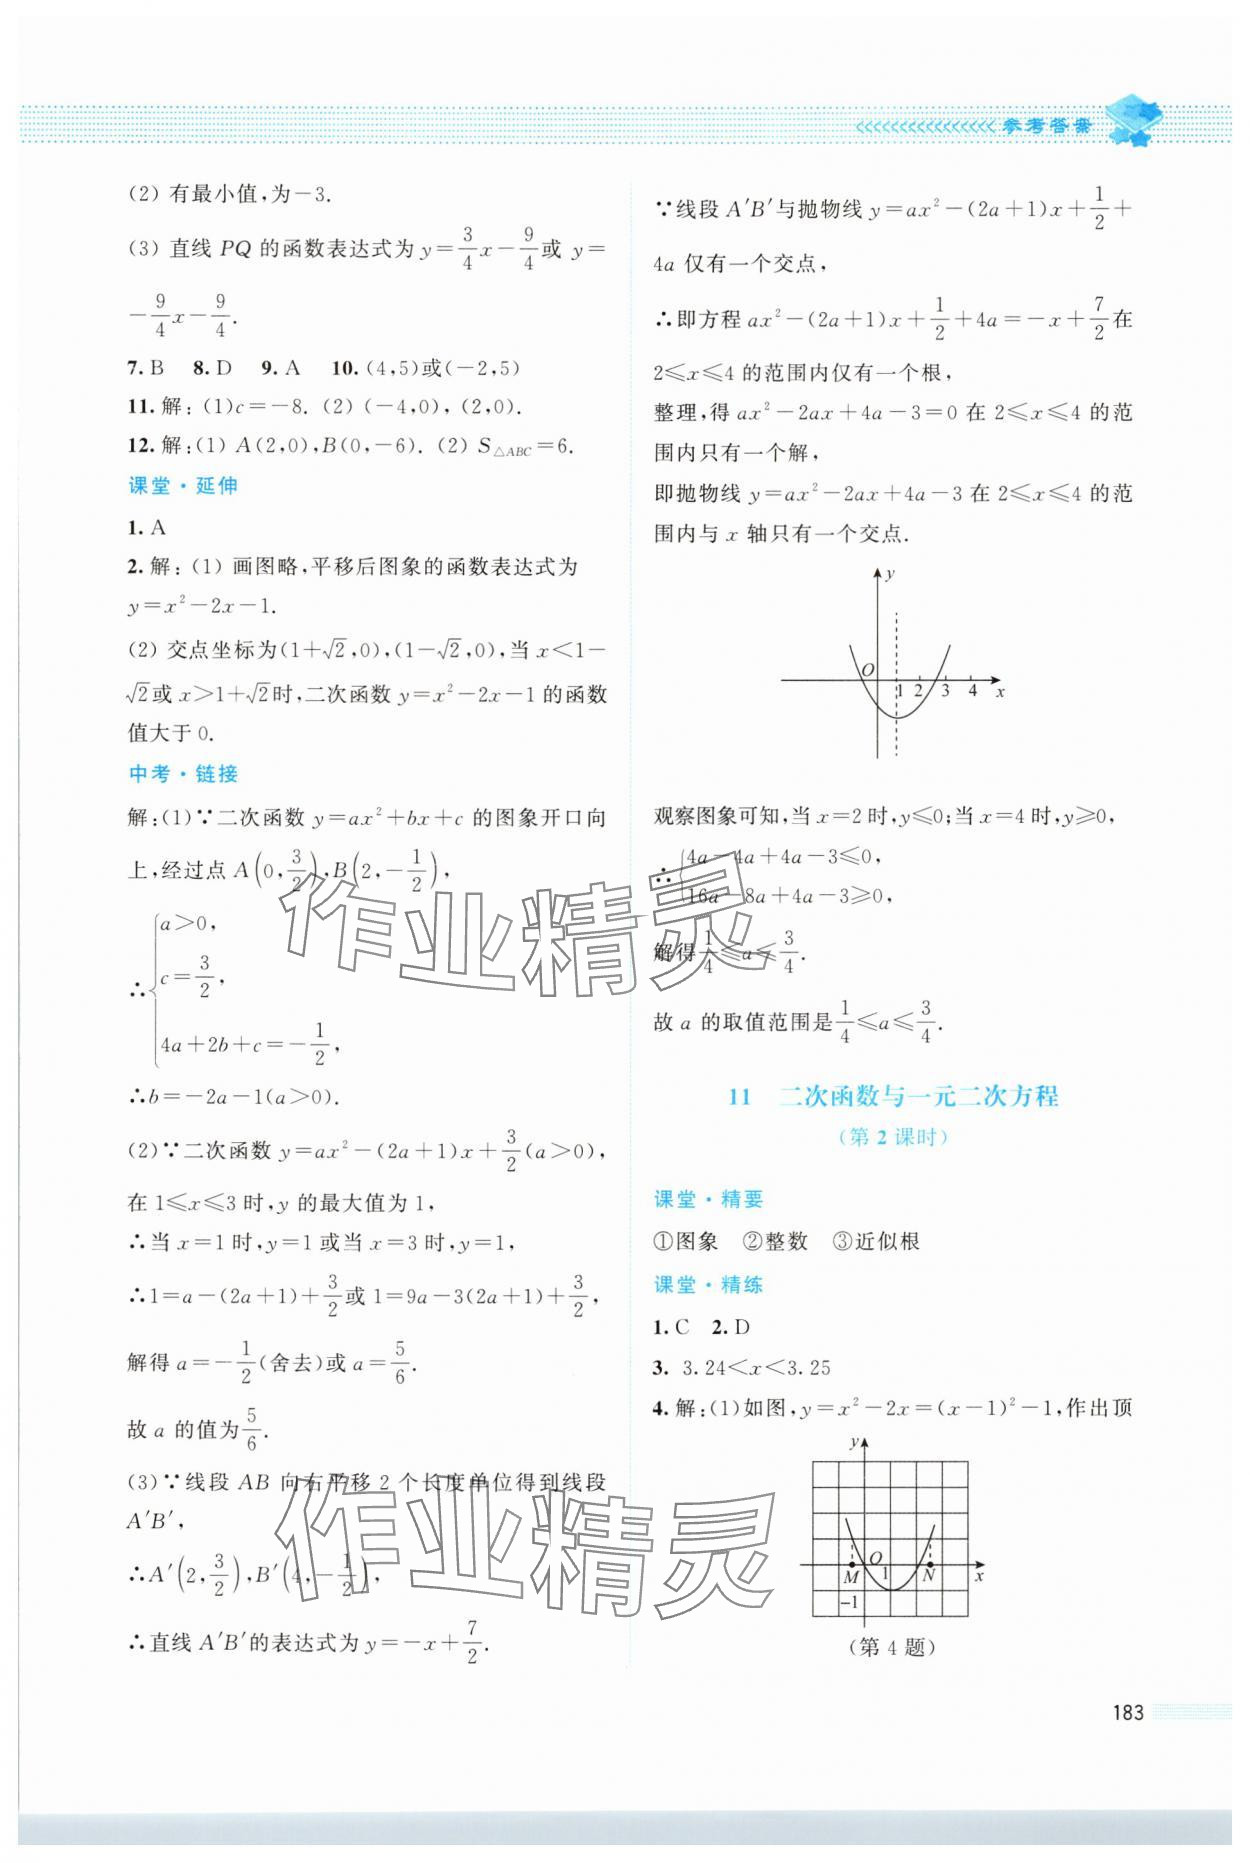 参考答案
(2) 有最小值,为-3.
(3) 直线 PQ 的函数表达式为 y=3/4x-9/4或 y=
-9/4x-9/4.
7. B  8. D  9. A  10. (4,5)或(-2,5)
11. 解:(1)c=-8. (2) (-4,0),(2,0).
12. 解:(1) A(2,0),B(0,-6). (2) S△ABC=6.
课堂·延伸
1. A
2. 解:(1) 画图略,平移后图象的函数表达式为
y=x²-2x-1.
(2) 交点坐标为(1+√2,0),(1-√2,0),当 x<1-
√2或 x>1+√2时,二次函数 y=x²-2x-1 的函数
值大于 0.
中考·链接
解:(1)∵二次函数 y=ax²+bx+c 的图象开口向
上,经过点 A(0,3/2),B(2,-1/2),
∴{a>0,
c=3/2,
4a+2b+c=-1/2,
∴b=-2a-1(a>0).
(2)∵二次函数 y=ax²-(2a+1)x+3/2(a>0),
在 1≤x≤3 时,y 的最大值为 1,
∴当 x=1 时,y=1 或当 x=3 时,y=1,
∴1=a-(2a+1)+3/2或 1=9a-3(2a+1)+3/2,
解得 a=-1/2(舍去)或 a=5/6.
故 a 的值为5/6.
(3)∵线段 AB 向右平移 2 个长度单位得到线段
A′B′,
∴A′(2,3/2),B′(4,-1/2),
∴直线 A′B′的表达式为 y=-x+7/2.
∵线段 A′B′与抛物线 y=ax²-(2a+1)x+1/2+
4a 仅有一个交点,
∴即方程 ax²-(2a+1)x+1/2+4a=-x+7/2在
2≤x≤4 的范围内仅有一个根,
整理,得 ax²-2ax+4a-3=0 在 2≤x≤4 的范
围内只有一个解,
即抛物线 y=ax²-2ax+4a-3 在 2≤x≤4 的范
围内与 x 轴只有一个交点.
y
O
1 2 3 4 x
观察图象可知,当 x=2 时,y≤0;当 x=4 时,y≥0,
∴{4a-4a+4a-3≤0,
16a-8a+4a-3≥0,
解得1/4≤a≤3/4.
故 a 的取值范围是1/4≤a≤3/4.
11 二次函数与一元二次方程
(第 2 课时)
课堂·精要
①图象 ②整数 ③近似根
课堂·精练
1. C  2. D
3. 3.24<x<3.25
4. 解:(1)如图,y=x²-2x=(x-1)²-1,作出顶
y
O
M 1 N x
-1
(第 4 题)
183
作业精灵
作业精灵